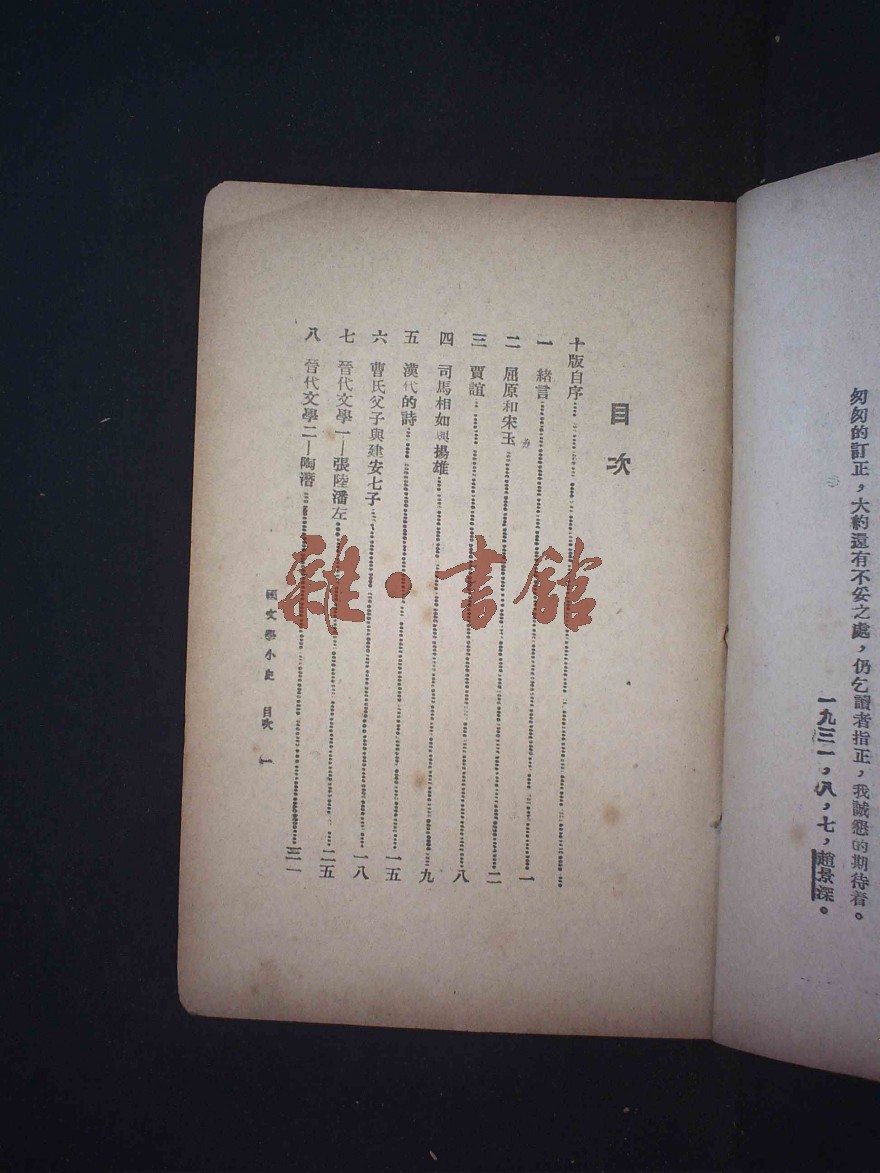 匆匆的訂正，大約還有不妥之處，仍乞讀者指正，我誠懇的期待着。
一九三一，八，七，趙景深。
目次
十版自序
一 緒言 一
二 屈原和宋玉 二
三 賈誼 八
四 司馬相如與揚雄 九
五 漢代的詩 一五
六 曹氏父子與建安七子 一八
七 晉代文學一—張陸潘左 二五
八 晉代文學二—陶潛 三一
國文學小史 目次 一
雜·書館